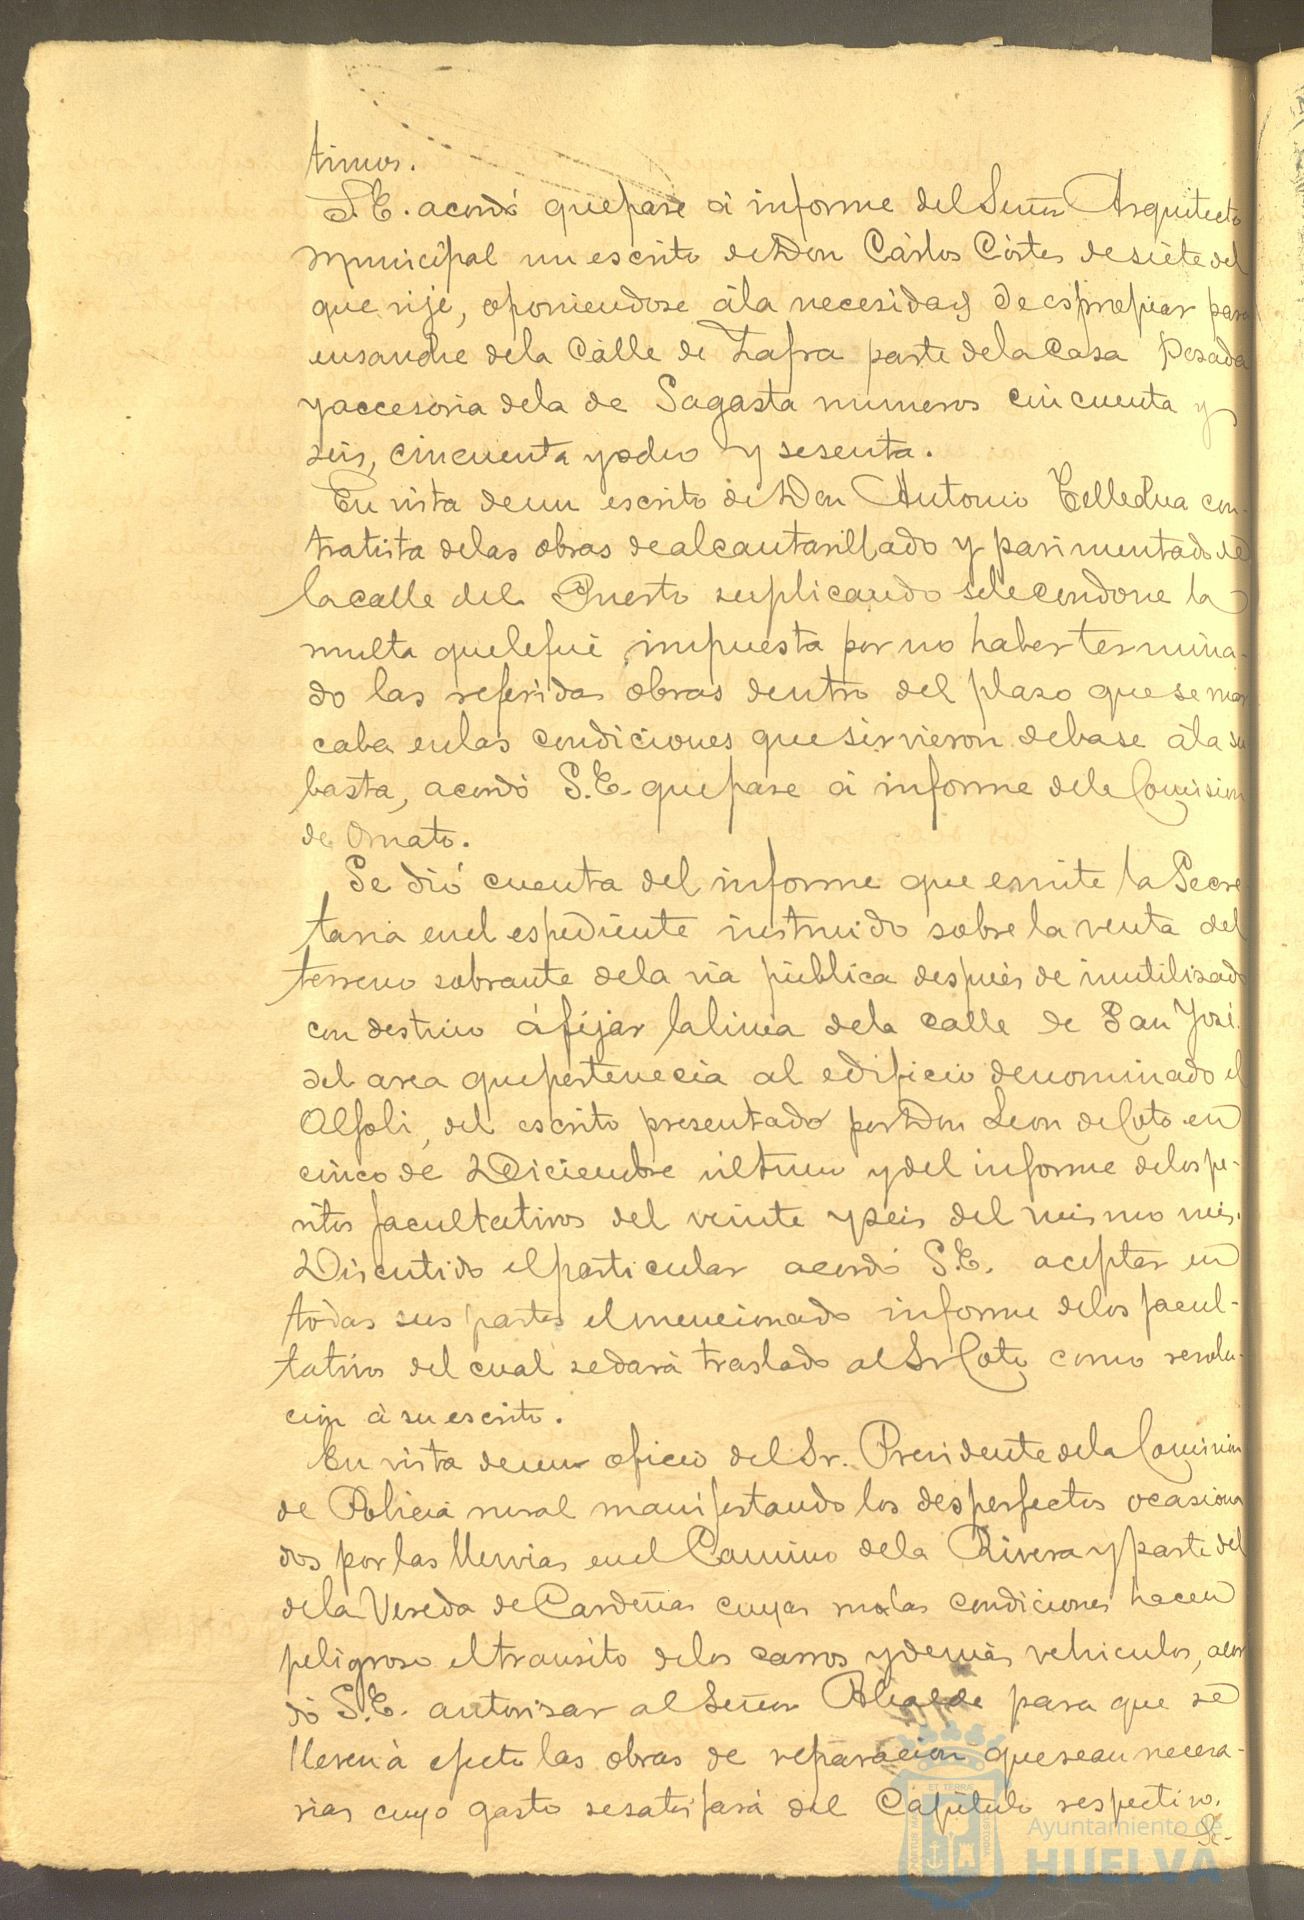 timos.
S.E. acordó que pase á informe del Señor Arquitecto
Municipal un escrito de Don Cárlos Córtes de siete del
que rije, oponiendose á la necesidad de espropiar para
ensanche de la Cálle de Zafra parte de la Casa Posada
y accesoria de la de Sagasta numeros cincuenta y
seis, cincuenta y ocho y sesenta.
En vista de un escrito de Don Antonio con-
tratista de las obras de alcantarillado y pavimentado de
la calle del Puerto suplicando se le condone la
multa que le fué impuesta por no haber termina-
do las referidas obras dentro del plazo que se mar
caba en las condiciones que sirvieron de base á la su
basta, acordó S.E. que pase á informe de la Comision
de Ornato.
Se dió cuenta del informe que emite la Secre
taria en el espediente instruido sobre la venta del
terreno sobrante de la via pública después de inutilizado
con destino á fijar la linea de la calle de San José.
del area que pertenecia al edificio denominado el
Alfoli, del escrito presentado por Don Leon de Coto en
cinco de Diciembre último y del informe de los pe-
ritos facultativos del veinte y seis del mismo mes.
Discutido el particular acordó S.E. aceptar en
todas sus partes el mencionado informe de los facul-
tativos del cual se dará traslado al Sr Coto como resolu-
cion á su escrito.
En vista de un oficio del Sr. Presidente de la Comision
de Policia rural manifestando los desperfectos ocasiona
dos por las lluvias en el Camino de la Rivera y parte del
de la Vereda de Cardeñas cuyas malas condiciones hacen
peligroso el transito de los carros y demás vehiculos, acor
dó S.E. autorizar al Señor Alcalde para que se
lleven á efecto las obras de reparacion que sean necesa-
rias cuyo gasto se satisfará del Capítulo respectivo.
Se-
Ayuntamiento de
HUELVA